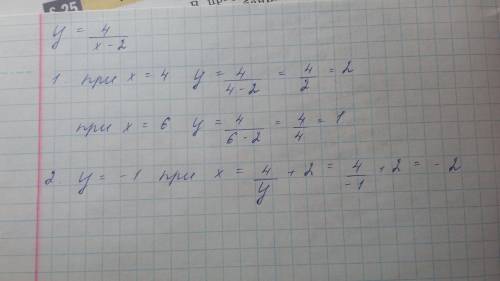 y = 4/(x - 2)
1 при x = 4 y = 4/(4 - 2) = 4/2 = 2
при x = 6 y = 4/(6 - 2) = 4/4 = 1
2. y = -1 при x = 4/y + 2 = 4/-1 + 2 = - 2